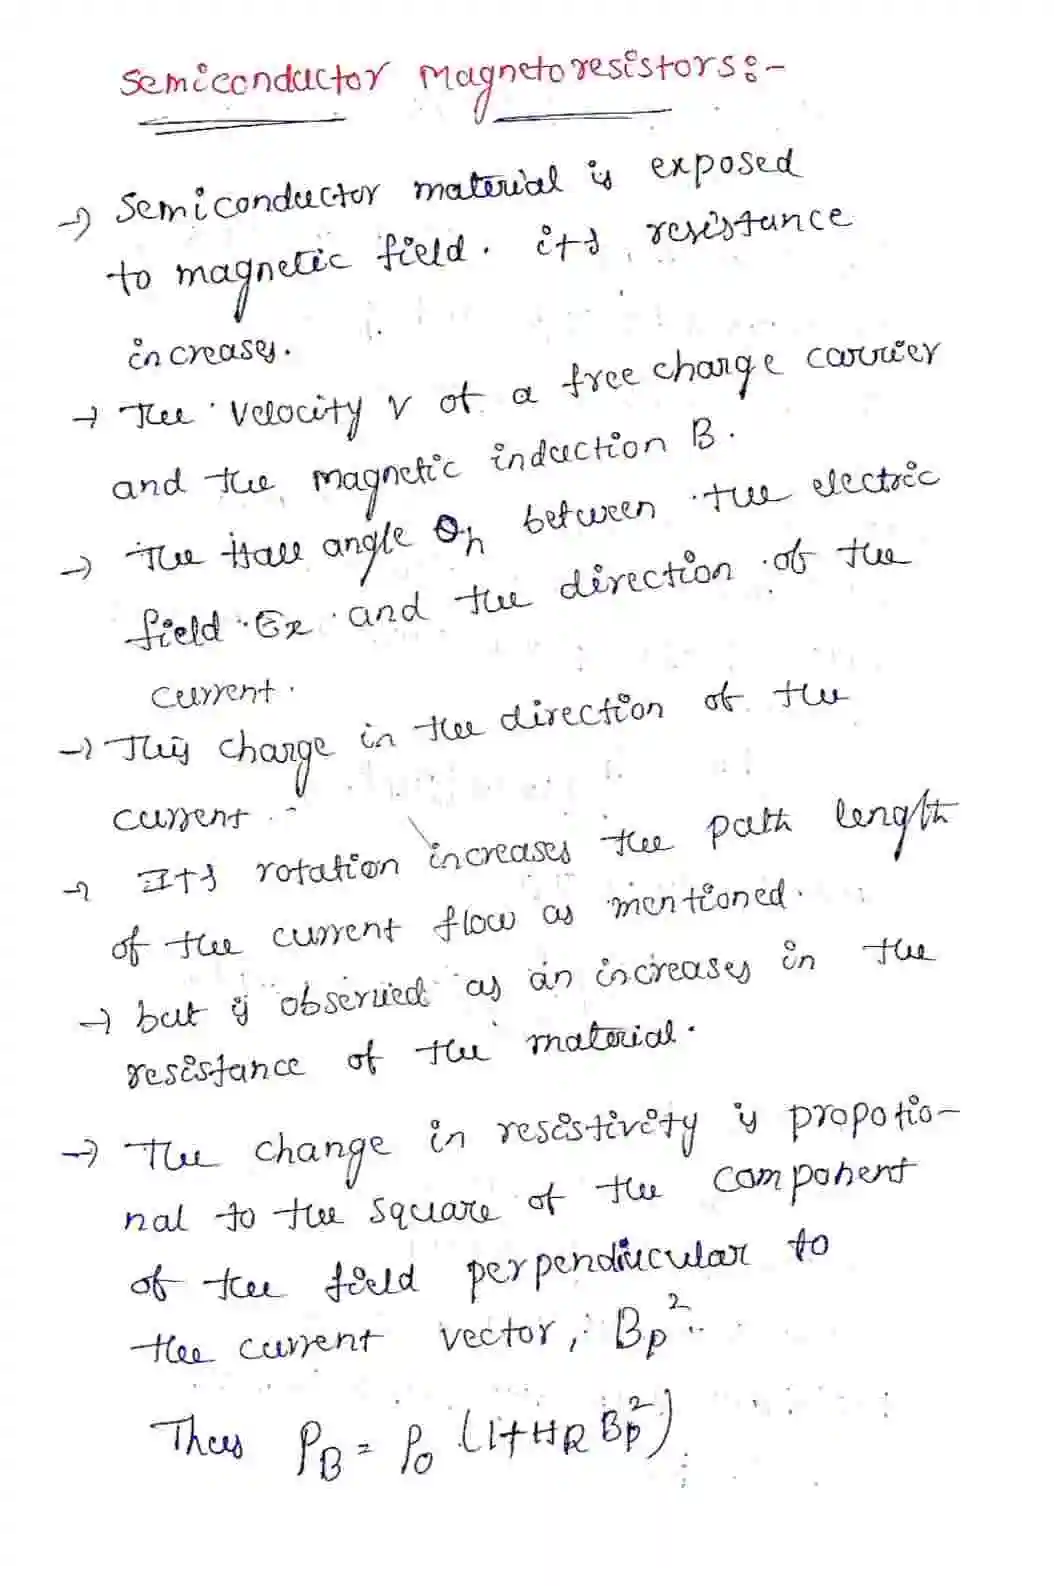 Semiconductor Magnetoresistors:-
→ Semiconductor material is exposed
to magnetic field. its resistance
increases.
→ The velocity v of a free charge carrier
and the magnetic induction B.
→ The Hall angle θh between the electric
field Ex and the direction of the
current.
→ This charge in the direction of the
current.
→ Its rotation increases the path length
of the current flow as mentioned.
→ but is observed as an increases in the
resistance of the material.
→ The change in resistivity is propotio-
nal to the square of the component
of the field perpendiucular to
the current vector, Bp².
Thus ρB = ρ0 (1+HR Bp²)